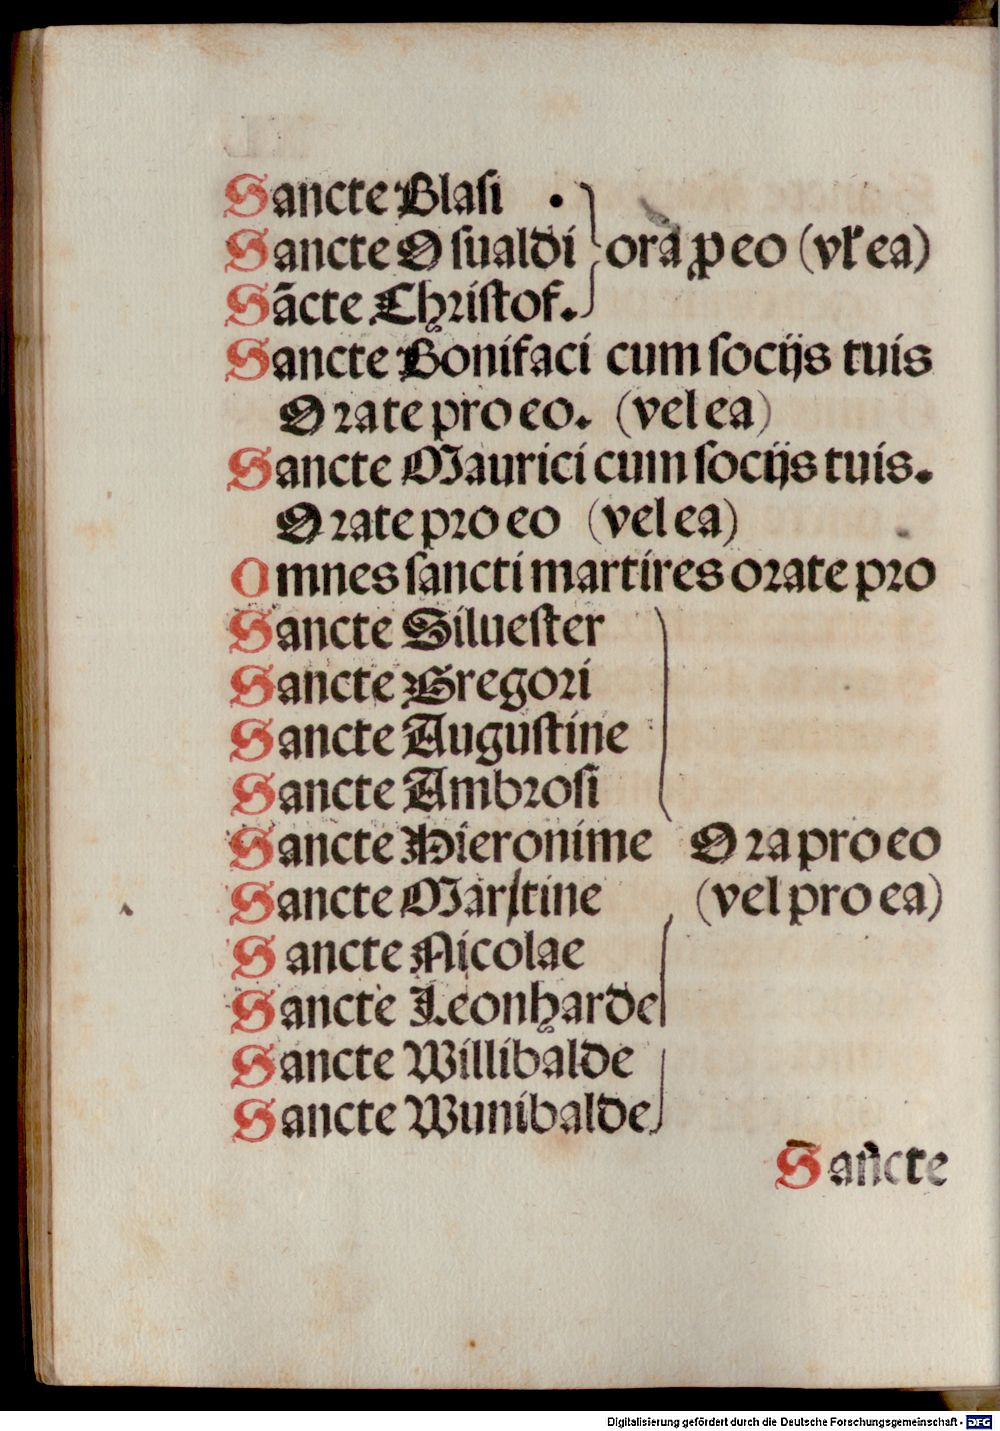 Sancte Blasi .
Sancte Osualdi ora ꝓ eo (vľ ea)
Sācte Christof.
Sancte Bonifaci cum socijs tuis
Orate pro eo. (vel ea)
Sancte Maurici cum socijs tuis.
Orate pro eo (vel ea)
Omnes sancti martires orate pro
Sancte Siluester
Sancte Gregori
Sancte Augustine
Sancte Ambrosi
Sancte Hieronime Ora pro eo
Sancte Martine (vel pro ea)
Sancte Nicolae
Sancte Leonharde
Sancte Willibalde
Sancte Wunibalde
Sancte
Digitalisierung gefördert durch die Deutsche Forschungsgemeinschaft - DFG